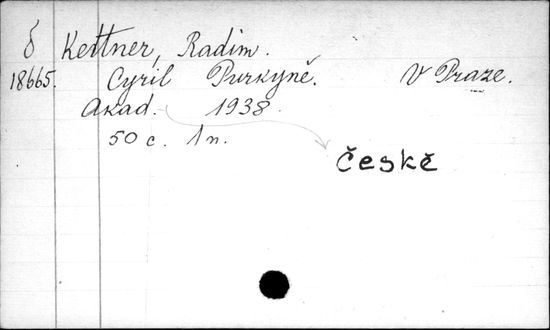 δ Kettner, Radim.
18665. Cyril Purkyně. V Praze.
Akad. 1938.
České
50 c. 1 n.